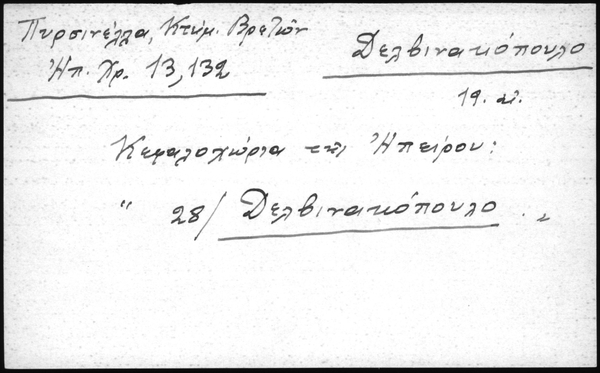 Πυρσινέλλα, Κτημ. Βρετῶν
Ἠπ. Χρ. 13, 132
Δελβινακόπουλο
19. αἰ.
Κεφαλοχώρια τῆς Ἠπείρου:
" 28/ Δελβινακόπουλο . "